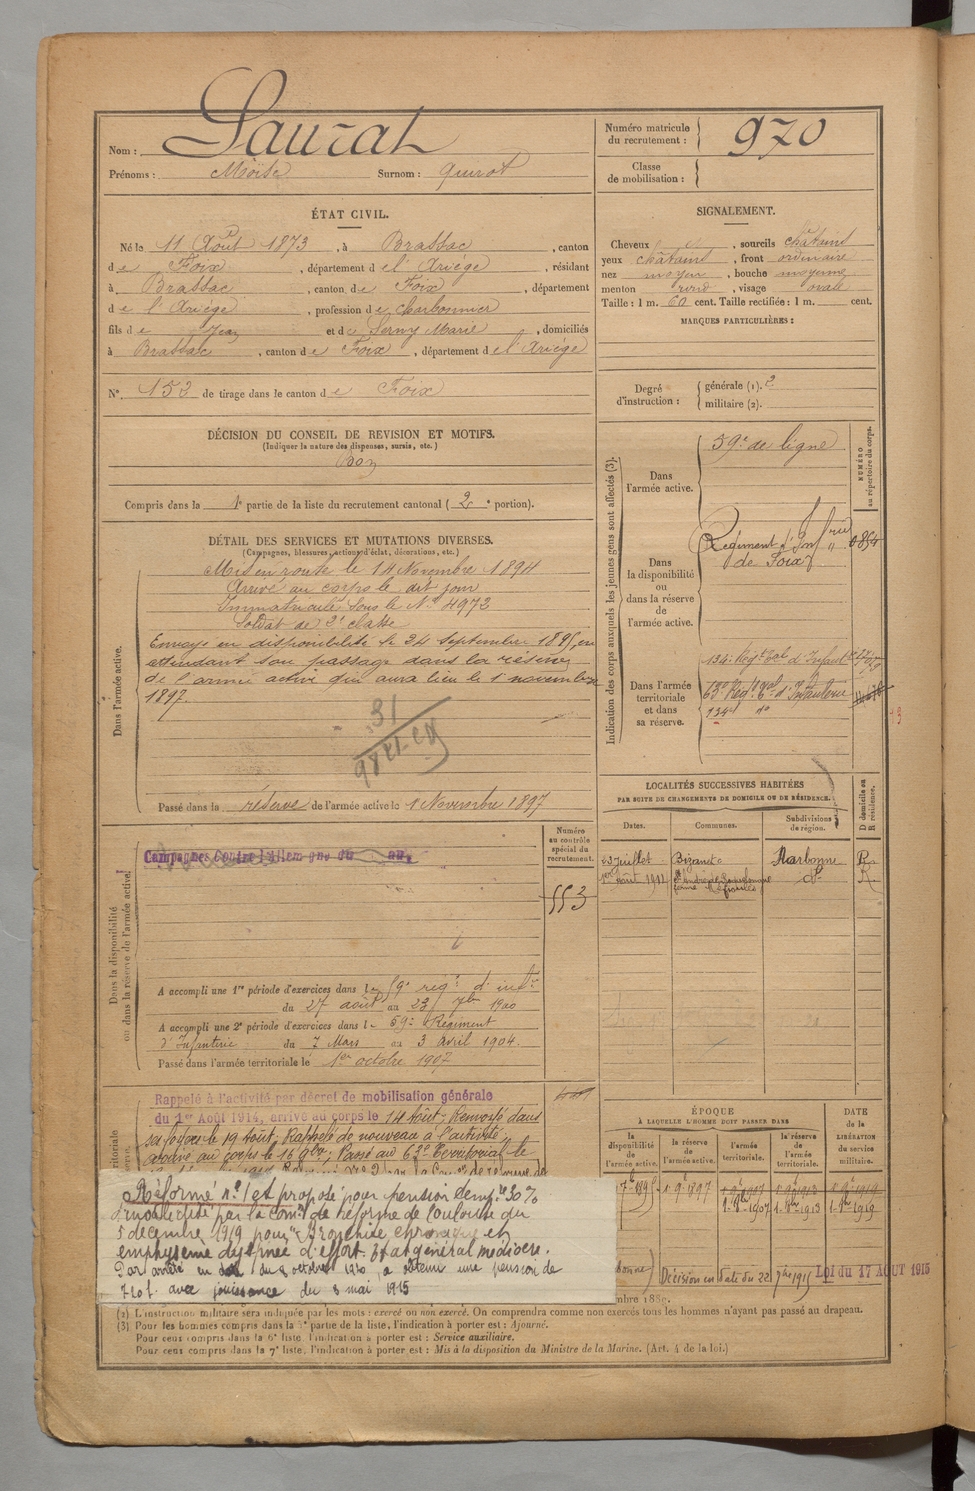 Nom : Lauzat
Prénoms : Moïse Surnom : Quirot
Numéro matricule du recrutement : 970
Classe de mobilisation :
ÉTAT CIVIL.
Né le 11 Août 1873, à Brassac, canton
de Foix, département de l'Ariège, résidant
à Brassac, canton de Foix, département
de l'Ariège, profession de charbonnier
fils de Jean et de Serny Marie, domiciliés
à Brassac, canton de Foix, département de l'Ariège
N° 153 de tirage dans le canton de Foix
SIGNALEMENT.
Cheveux, sourcils châtains
yeux châtains, front ordinaire
nez moyen, bouche moyenne
menton rond, visage ovale
Taille : 1 m. 60 cent. Taille rectifiée : 1 m. cent.
MARQUES PARTICULIÈRES :
Degré d'instruction : générale (1). 2
militaire (2).
DÉCISION DU CONSEIL DE REVISION ET MOTIFS.
(Indiquer la nature des dispenses, sursis, etc.)
Bon
Compris dans la 1e partie de la liste du recrutement cantonal (2e portion).
DÉTAIL DES SERVICES ET MUTATIONS DIVERSES.
(Campagnes, blessures, actions d'éclat, décorations, etc.)
Dans l'armée active.
Mis en route le 14 Novembre 1894
Arrivé au corps le dit jour
Immatriculé sous le N° 4972
Soldat de 2e classe
Envoyé en disponibilité le 24 septembre 1895, en
attendant son passage dans la réserve
de l'armée active qui aura lieu le 1 novembre
1897.
Passé dans la réserve de l'armée active le 1 Novembre 1897
Indication des corps auxquels les jeunes gens sont affectés (3).
NUMÉRO au répertoire du corps.
Dans l'armée active.
59e de ligne
Dans la disponibilité ou dans la réserve de l'armée active.
Régiment d'Infrie
de Foix
Dans l'armée territoriale et dans sa réserve.
134e Régt Tal d'Infant
63e Régt d'Infanterie
134e do
LOCALITÉS SUCCESSIVES HABITÉES
PAR SUITE DE CHANGEMENTS DE DOMICILE OU DE RÉSIDENCE.
Dates. Communes. Subdivisions de région. D domicile ou R résidence.
23 Juillet Bizanet Narbonne R
1er Août 1912 R
Dans la disponibilité ou dans la réserve de l'armée active.
Campagnes Contre l'Allemagne du au
Numéro au contrôle spécial du recrutement.
553
A accompli une 1re période d'exercices dans le 59e régt d'infie
du 27 août au 23 7bre 1900
A accompli une 2e période d'exercices dans le 59e Régiment
d'Infanterie du 7 Mars au 3 avril 1904.
Passé dans l'armée territoriale le 1er octobre 1907
Rappelé à l'activité par décret de mobilisation générale
du 1er Août 1914, arrivé au corps le 14 Août. Renvoyé dans
ses foyers le 19 Août. Rappelé de nouveau à l'activité,
arrivé au corps le 16 9bre; Passé au 63e Territorial le
Réformé n° 1 et proposé pour pension temp. 30 %
d'invalidité par la comon de réforme de Toulouse du
5 décembre 1919 pour "Bronchite chronique et
emphysème dyspnée d'effort. Etat général médiocre.
Par arrêté en date du 8 octobre 1920, a obtenu une pension de
720f. avec jouissance du 8 mai 1915
ÉPOQUE
À LAQUELLE L'HOMME DOIT PASSER DANS
la disponibilité de l'armée active. la réserve de l'armée active. l'armée territoriale. la réserve de l'armée territoriale.
DATE DE LA LIBÉRATION DU SERVICE militaire.
Décision en date du 22 7bre 1915 Loi du 17 AOUT 1915
(2) L'instruction militaire sera indiquée par les mots : exercé ou non exercé. On comprendra comme non exercés tous les hommes n'ayant pas passé au drapeau.
(3) Pour les hommes compris dans la 5e partie de la liste, l'indication à porter est : Ajourné.
Pour ceux compris dans la 6e liste, l'indication à porter est : Service auxiliaire.
Pour ceux compris dans la 7e liste, l'indication à porter est : Mis à la disposition du Ministre de la Marine. (Art. 4 de la loi.)